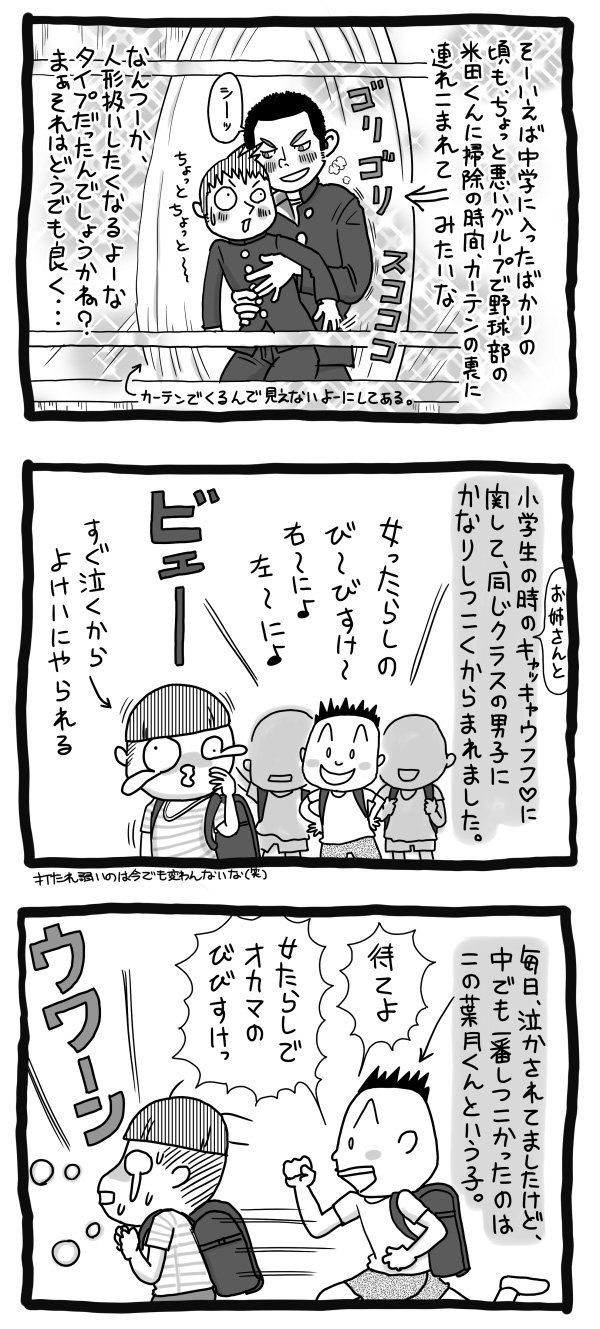 そーいえば中学に入ったばかりの
頃も、ちょっと悪いグループで野球部の
米田くんに掃除の時間、カーテンの裏に
連れこまれて みたいな
ゴリゴリ
スコココ
シーッ
ちょっと
ちょっと〜
なんつーか、
人形扱いしたくなるよーな
タイプだったんでしょうかね?
まぁそれはどうでも良く・・・
カーテンでくるんで見えないよーにしてある。
お姉さんと
小学生の時のキャッキャウフフ♡に
関して、同じクラスの男子に
かなりしつこくからまれました。
女ったらしの
び〜びすけ〜
右〜に♪
左〜によ♪
ビェー
すぐ泣くから
よけいにやられる
打たれ弱いのは今でも変わんないな(笑)
毎日、泣かされてましたけど、
中でも一番しつこかったのは
この葉月くんという子。
待てよ
女たらしで
オカマの
びびすけっ
ウワーン